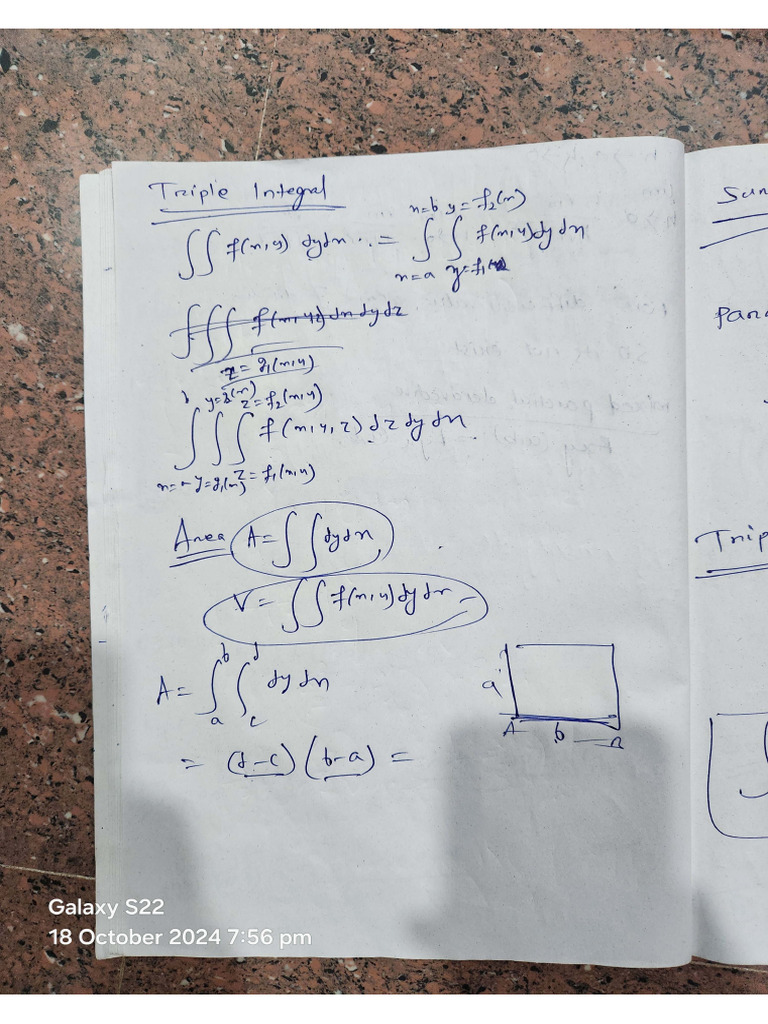 Triple Integral
∫∫ f(x,y) dydx ∴ = ∫_{x=a}^{x=b} ∫_{y=f₁(x)}^{y=f₂(x)} f(x,y) dy dx
∫∫∫ f(x,y,z) dx dy dz
z = g₁(x,y)
∫_{x=} ∫_{y=g₁(x)} ∫_{z=f₁(x,y)}^{z=f₂(x,y)} f(x,y,z) dz dy dx
Area A = ∫∫ dydx
V = ∫∫ f(x,y) dy dx
A = ∫_a^b ∫_c^d dy dx
= (d-c) (b-a) =
a
A b B
Trip
Galaxy S22
18 October 2024 7:56 pm